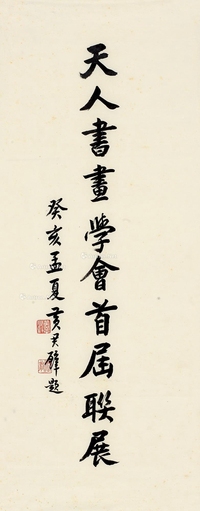 天人書畫學會首屆聯展
癸亥孟夏黃君璧題